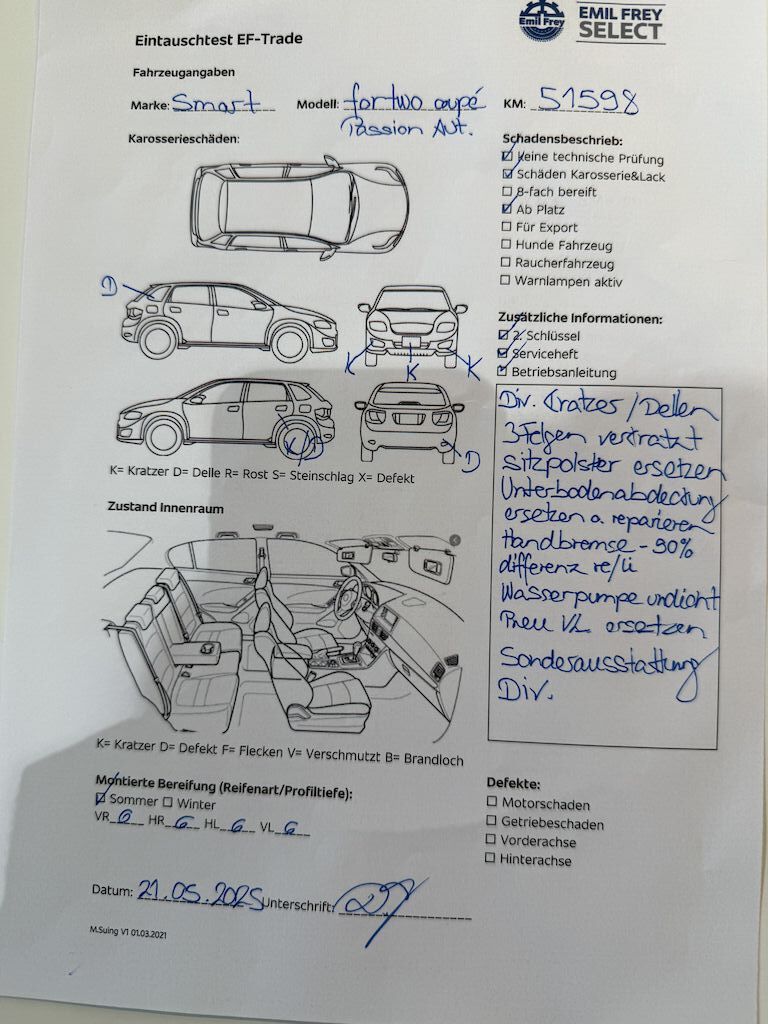 Emil Frey
EMIL FREY
SELECT
Eintauschtest EF-Trade
Fahrzeugangaben
Marke: Smart Modell: fortwo coupé KM: 51598
Passion Aut.
Karosserieschäden:
D
K K K
K/D
D
K= Kratzer D= Delle R= Rost S= Steinschlag X= Defekt
Zustand Innenraum
K= Kratzer D= Defekt F= Flecken V= Verschmutzt B= Brandloch
Montierte Bereifung (Reifenart/Profiltiefe):
☑ Sommer ☐ Winter
VR 6 HR 6 HL 6 VL 6
Schadensbeschrieb:
☑ Keine technische Prüfung
☑ Schäden Karosserie&Lack
☐ 8-fach bereift
☑ Ab Platz
☐ Für Export
☐ Hunde Fahrzeug
☐ Raucherfahrzeug
☐ Warnlampen aktiv
Zusätzliche Informationen:
☑ 2. Schlüssel
☑ Serviceheft
☑ Betriebsanleitung
Div. Kratzer / Dellen
3 Felgen verkratzt
Sitzpolster ersetzen
Unterbodenabdeckung
ersetzen o. reparieren
Handbremse - 90%
differenz re/li
Wasserpumpe undicht
Pneu VL ersetzen
Sonderausstattung
Div.
Defekte:
☐ Motorschaden
☐ Getriebeschaden
☐ Vorderachse
☐ Hinterachse
Datum: 21.05.2025 Unterschrift:
M.Suing V1 01.03.2021